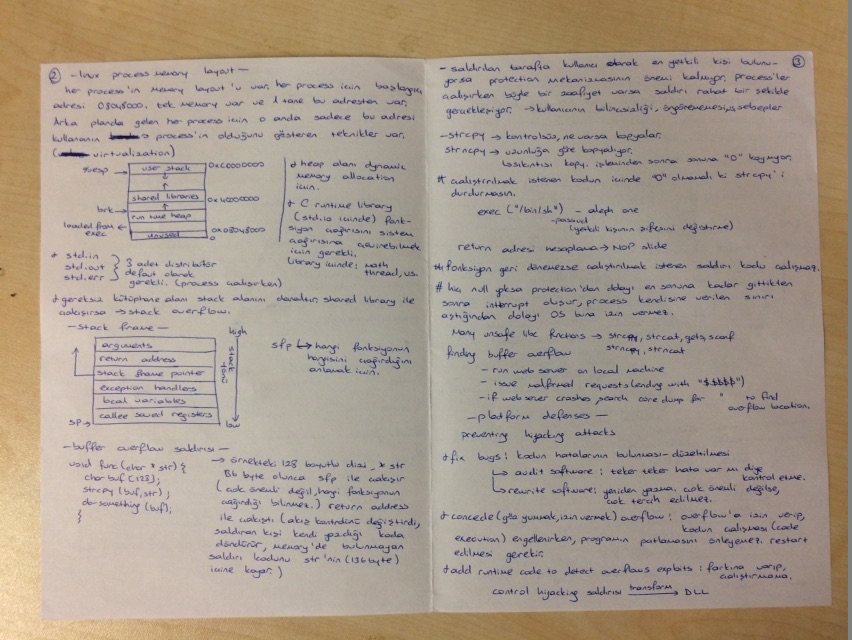 ② - linux process memory layout -
her process'in memory layout'u var, her process icin baslangıç
adresi 08048000. tek memory var ve 1 tane bu adresten var.
Arka planda gelen her process icin o anda sadece bu adresi
kullananın process'in olduğunu gösteren teknikler var.
(virtualization)
user stack
0xC0000000
%esp
shared libraries
0x40000000
brk
run time heap
loaded from exec
0x08048000
unused
0
* heap alanı dynamic
memory allocation
icin.
* C runtime library
(std.io icinde) fonk-
siyon çağrısını sistem
çağrısına çevirebilmek
icin gerekli.
library icinde; math
thread, vs.
* std.in
std.out
std.err
3 adet distribütör
default olarak
gerekli. (process çalışırken)
* gereksiz kütüphane alanı stack alanını daraltır; shared library ile
çakışırsa → stack overflow.
- stack frame -
high
arguments
return address
stack frame pointer
exception handlers
local variables
callee saved registers
stack
low
sp
sfp → hangi fonksiyonun
hangisini çağırdığını
anlamak icin.
- buffer overflow saldırısı -
void func(char * str) {
char buf[128];
strcpy (buf,str);
do-something (buf);
}
→ örnekteki 128 boyutlu dizi, * str
136 olunca sfp ile çakışır
(çok önemli değil, hangi fonksiyonun
çağırdığı bilinmez.) return address
ile çakıştı (akış kontrolünü değiştirdi,
saldıran kişi kendi yazdığı koda
döndürür, memory'de bulunmayan
saldırı kodunu str'nin (136 byte)
icine koyar.)
③
- saldırılan tarafta kullanıcı olarak en yetkili kişi bulunu-
yorsa protection mekanizmasının önemi kalmıyor. process'ler
çalışırken böyle bir zaafiyet varsa saldırı rahat bir şekilde
gerçekleşiyor. → kullanıcının bilinçsizliği, öngörememesi, sebepler
- strcpy → kontrolsüz, ne varsa kopyalar.
strncpy → uzunluğa göre kopyalıyor.
→ sıkıntısı kopy. işleminden sonra sonuna "0" koymuyor.
* çalıştırılmak istenen kodun icinde "0" olmamalı ki strcpy'i
durdurmasın.
exec ("/bin/sh") - aleph one
- passwd
(yetkili kişinin şifresini değiştirme)
return adresi hesaplama → NOP slide
* fonksiyon geri dönemezse çalıştırılmak istenen saldırı kodu çalışmaz.
* hiç null yoksa protection'dan dolayı en sonuna kadar gittikten
sonra interrupt oluşur, process kendisine verilen sınırı
aştığından dolayı OS buna izin vermez.
Many unsafe libc functions → strcpy, strcat, gets, scanf
strncpy, strncat
finding buffer overflow
- run web server on local machine
- issue malformed requests (ending with "$$$$$")
- if web server crashes, search core dump for " to find
overflow location.
- platform defenses -
preventing hijacking attacks
* fix bugs: kodun hatalarının bulunması - düzeltilmesi
→ audit software: teker teker hata var mı diye
kontrol etme.
→ rewrite software: yeniden yazma, çok önemli değilse,
çok tercih edilmez.
* concede (göz yummak, izin vermek) overflow: overflow'a izin verip,
kodun çalışması (code
execution) engellenirken, programın patlamasını önleyemez. restart
edilmesi gerekir.
* add runtime code to detect overflows exploits: farkına varıp,
çalıştırmama.
control hijacking saldırısı transform → DLL